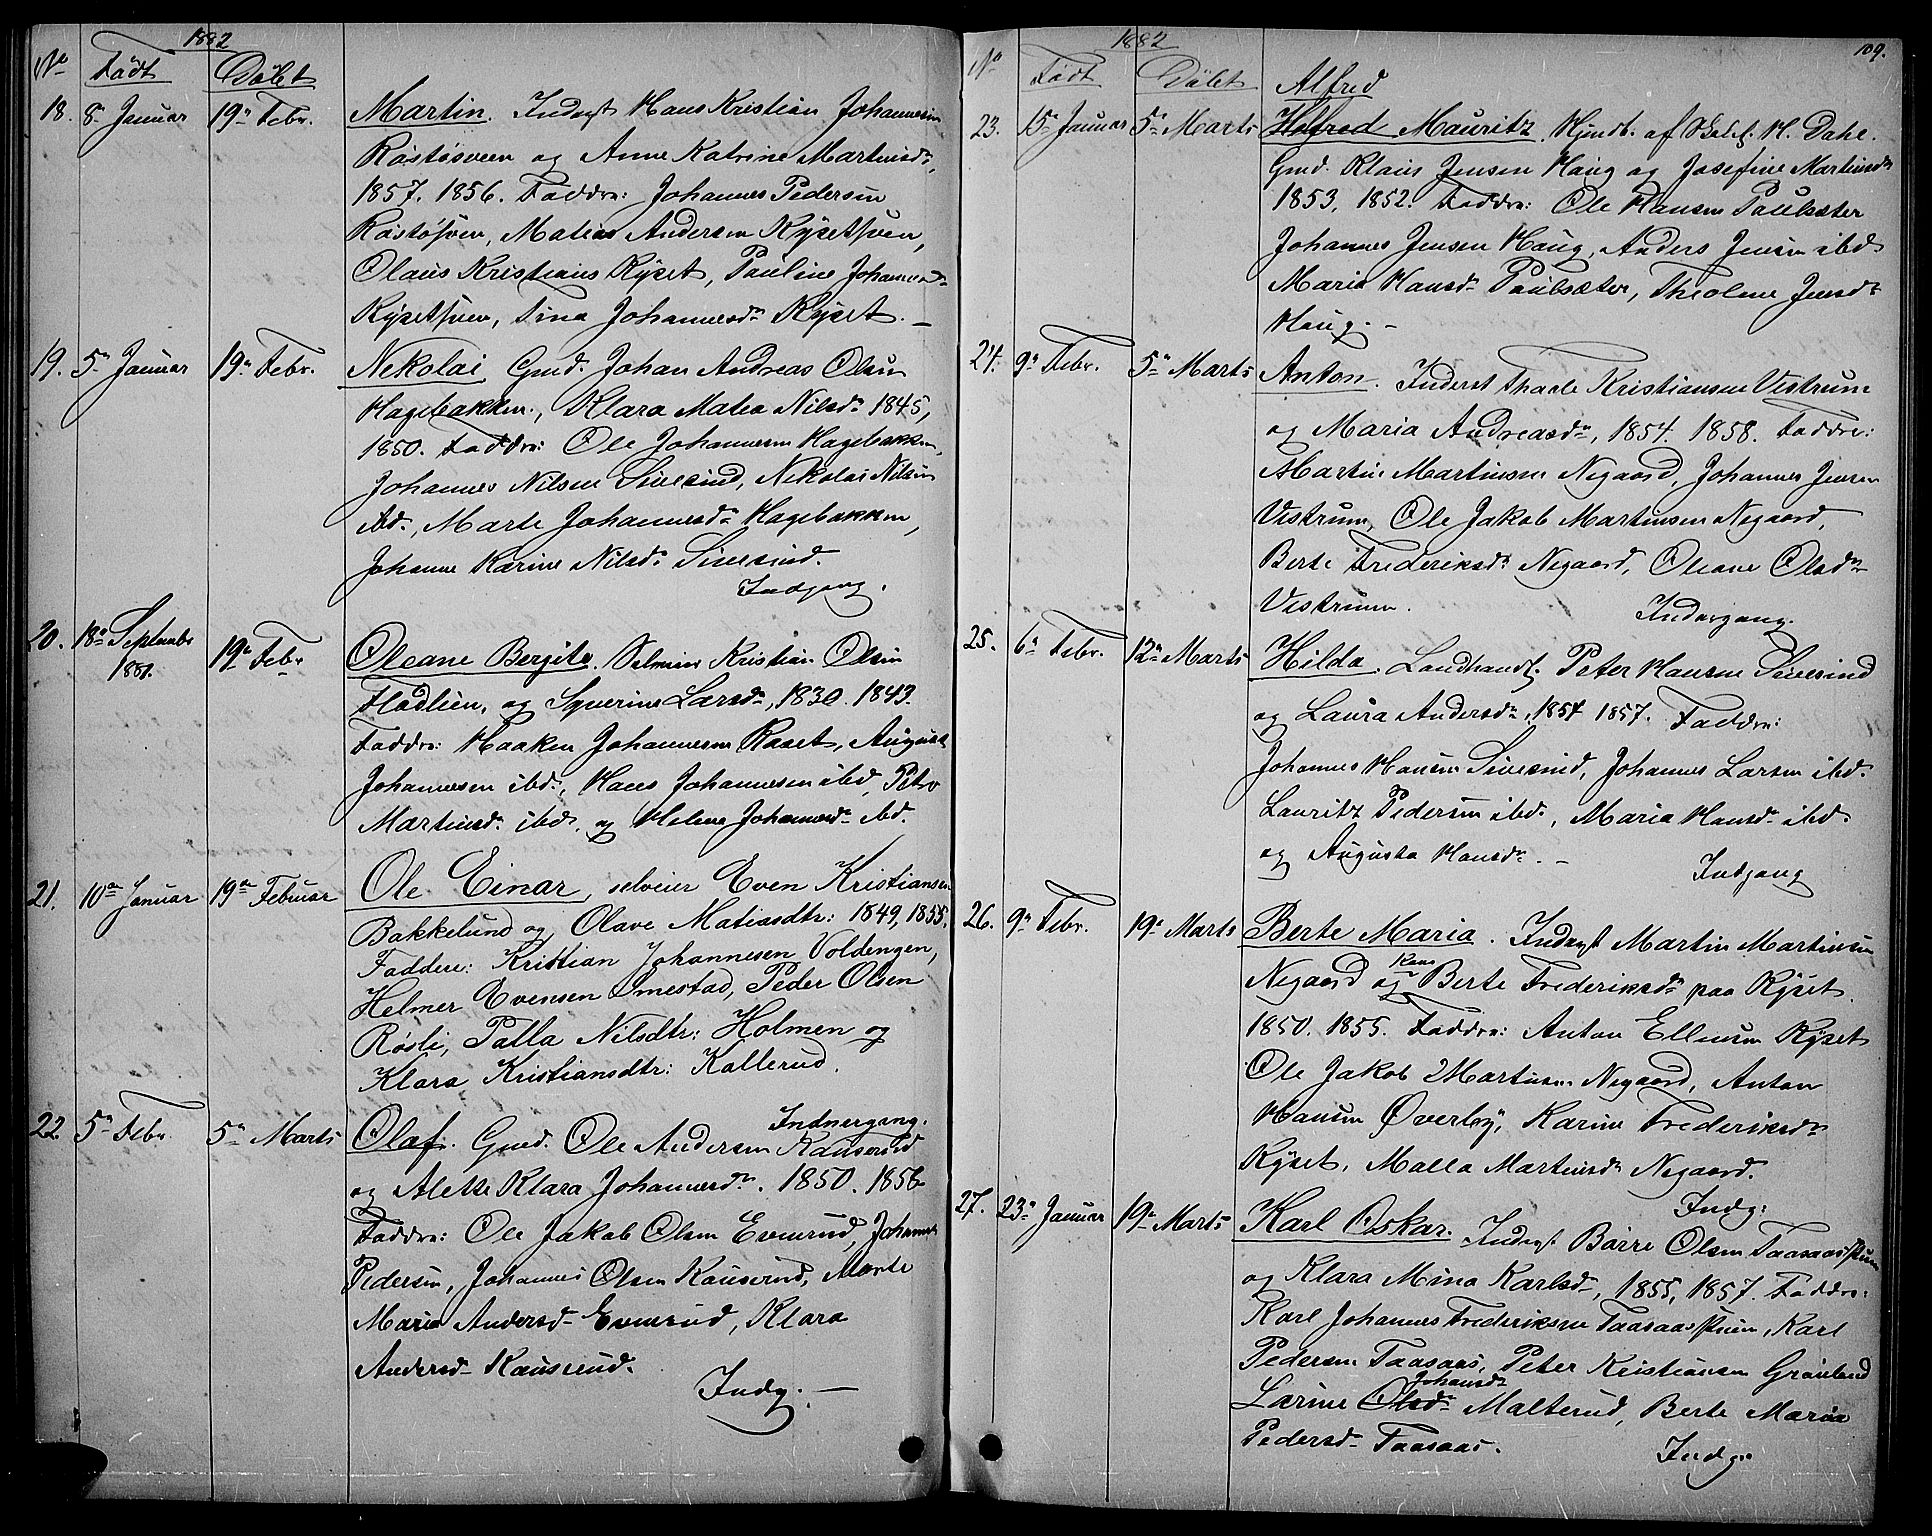 1882
No Født Døbt
18. 8de Januar 19de Febr. Martin. Inderst Hans Kristian Johannesen
Røstøsveen og Anne Katrine Martinsdr.
1857. 1856. Faddre: Johannes Pedersen
Røstøsveen, Matias Andersen Kysetsveen,
Olaus Kristians Kyset, Pauline Johannesdr.
Kysetsveen, Tina Johannesdr. Kyset. —
19. 5de Januar 19de Febr. Nekolai Gmd. Johan Andreas Olsen
Hagebakken, Klara Matea Nilsdr. 1845,
1850. Faddre: Ole Johannesen Hagebakken,
Johannes Nilsen Sivesind, Nekolai Nilsen
ibd., Marte Johannesdr. Hagebakken,
Johanne Karine Nilsdr. Sivesind.
Indgang.
20. 18de Septembr 1881. 19de Febr Oleane Bergite. Selveier Kristian Olsen
Fladlien, og Syverine Larsdr., 1830. 1843.
Faddre: Haaken Johannesen Raset, August
Johannesen ibd., Hans Johannesen ibd, Petra
Martinsdr. ibd. og Helene Johannesdr. ibd.
21. 10de Januar 19de Februar Ole Einar, selveier Even Kristiansen
Bakkelund og Olave Matiasdtr: 1849, 1855.
Faddere: Kristian Johannesen Voldengen,
Helmer Evensen Smestad, Peder Olsen
Røsli, Palla Nilsdtr: Holmen og
Klara Kristiansdtr: Kallerud.
Indnergang.
22. 5de Febr. 5de Marts Olaf. Gmd. Ole Andersen Kauserud
og Alette Klara Johannesdr. 1850. 1856
Faddre: Ole Jakob Olsen Evenrud, Johannes
Pedersen, Johannes Olsen Kauserud, Marte
Maria Andersd. Evenrud, Klara
Andersd. Kauserud.
Indg. —
1882
109.
No Født Døbt
Alfred
23. 15de Januar 5de Marts Halfred Mauritz. Hjmdt. af Bet. H. Dahl.
Gmd. Klaus Jensen Haug og Josefine Martinsdr
1853, 1852. Faddre: Ole Hansen Paulsæter
Johannes Jensen Haug, Anders Jensen ibd
Maria Hansdr. Paulsæter, Theoline Jensdr
Haug. —
24. 9de Febr. 5de Marts Anton. Inderst Tharle Kristiansen Vestrum
og Maria Andreasdr., 1854. 1858. Faddre:
Martin Martinsen Negaard, Johannes Jensen
Vestrum, Ole Jakob Martinsen Negaard,
Berte Frederiksdr. Negaard, Oleane Olsdr
Vestrum.
Indergang.
25. 6de Febr. 12de Marts Hilda. Landhandl. Peter Hansen Sivesind
og Laura Andersdr., 1854 1857. Faddre:
Johannes Hansen Sivesind, Johannes Larsen ibd.
Lauritz Pedersen ibd., Maria Hansdr. ibd.
og Augusta Hansdr. . —
Indgang
26. 9de Febr. 19de Marts Berte Maria. Inderst Martin Martinsen
Negaard og Kone Berte Frederiksdr paa Kyset.
1850. 1855. Faddre: Anton Ellensen Kyset
Ole Jakob Martinsen Negaard, Anton
Hansen Øverby, Karine Frederiksdr
Kyset, Malla Martinsdr Negaard.
Indg:
27. 23de Januar 19de Marts Karl Oskar. Inderst Børre Olsen Taasaasveen
og Klara Mina Karlsdr., 1855, 1857. Faddre:
Karl Johannes Frederiksen Taasaasveen, Karl
Pedersen Taasaas, Peter Kristiansen Grønland
Johansdr
Larine Olsdr Malterud, Berte Maria
Pedersd. Taasaas.
Indg.